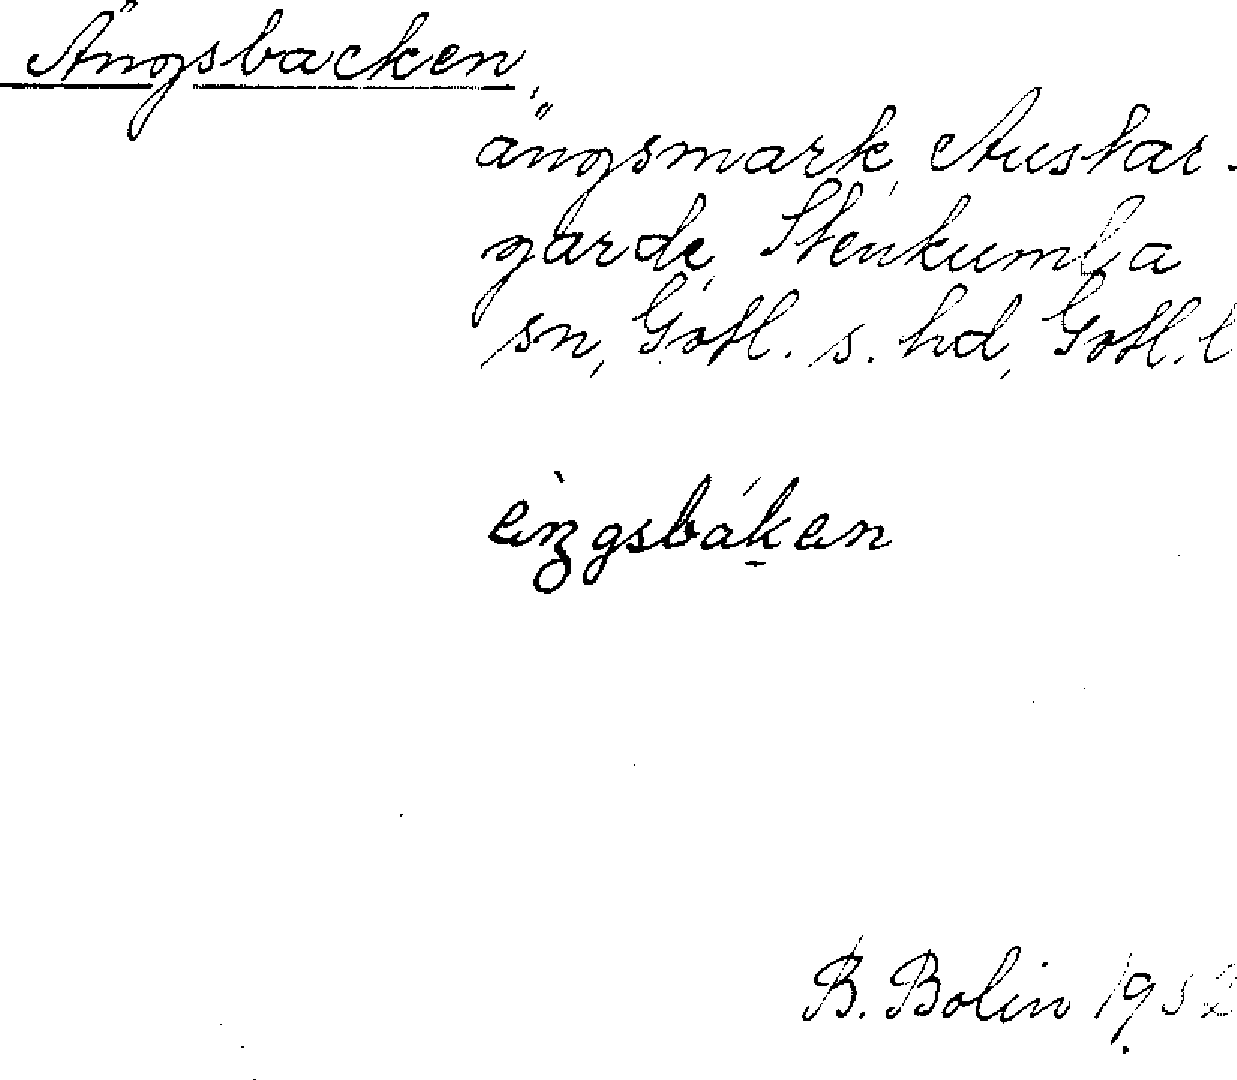 Ängsbacken,
ängsmark, Austar-
garde, Stenkumla
sn, Gotl. s. hd, Gotl. l
B. Bolin 1952